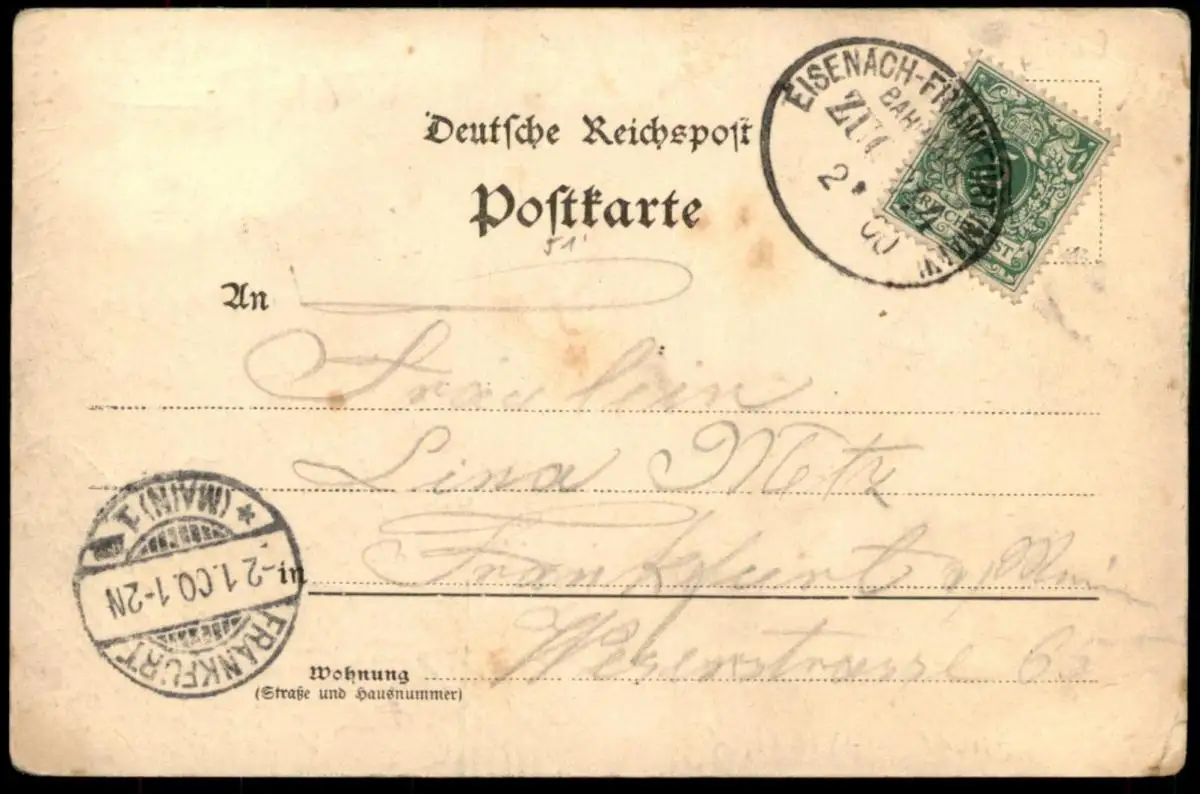 Deutsche Reichspost
Postkarte
51
An
Fräulein
Lina Metz
in Frankfurt a/Main
Wohnung Weserstrasse 65
(Straße und Hausnummer)
EISENACH-FRANKFURT (MAIN)
BAH
ZUG
2 1 00
REICHSPOST
FRANKFURT
-2.1.00.1-2N
* (MAIN) 1